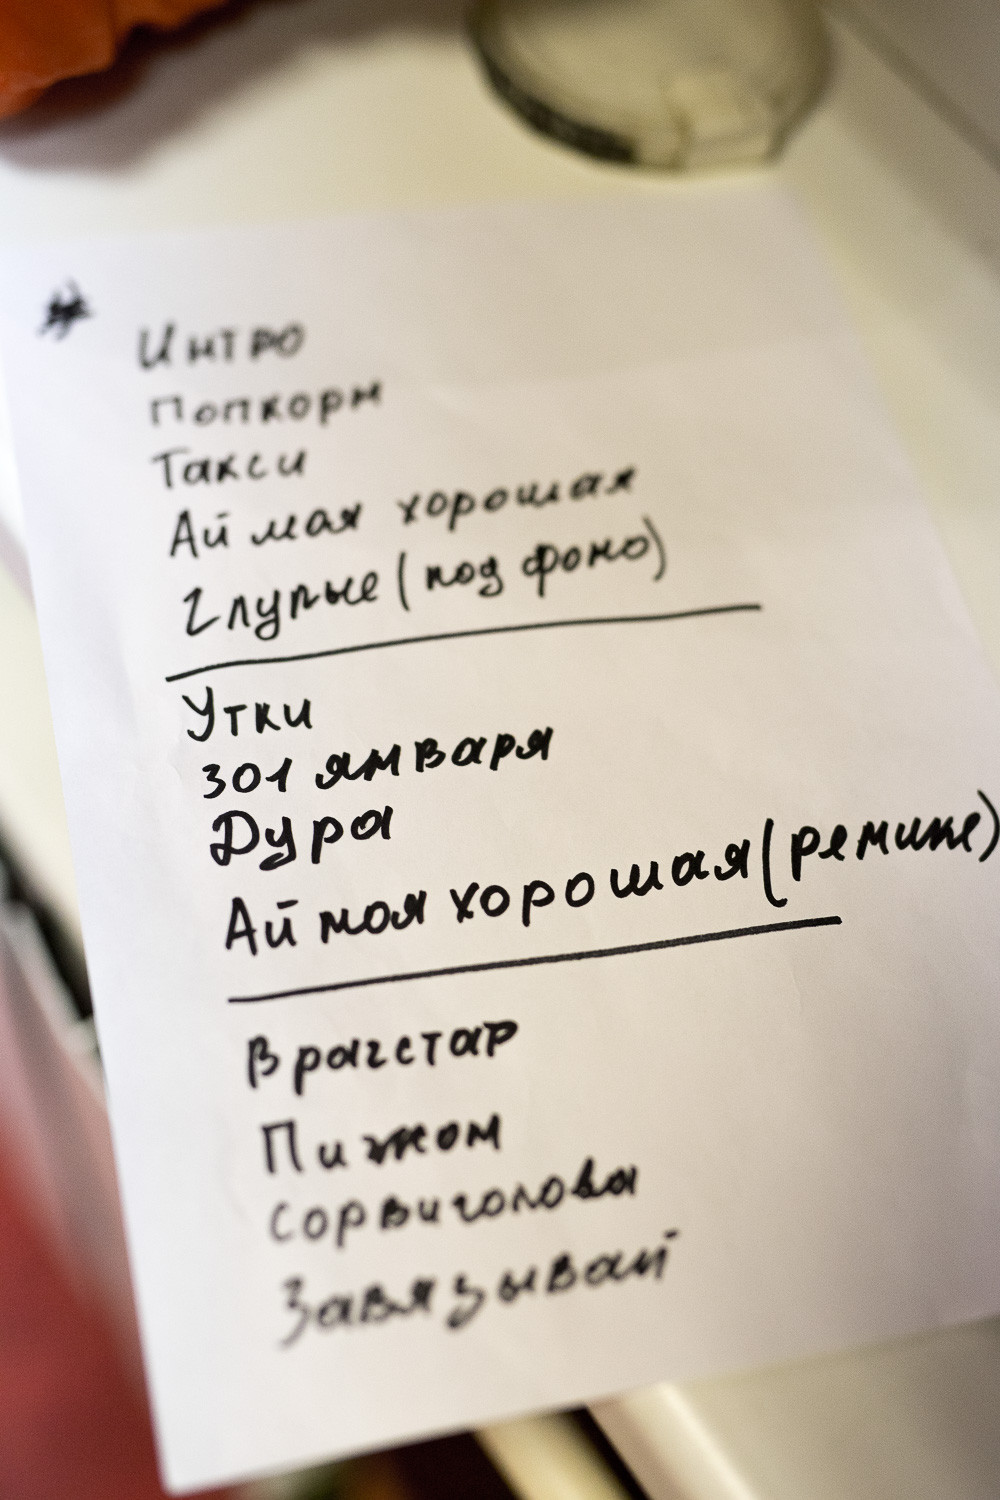 Интро
Попкорн
Такси
Ай мая хорошая
Глупые (под фоно)
Утки
301 января
Дура
Ай моя хорошая (ремикс)
Врагстар
Пижон
Сорвиголова
Завязывай